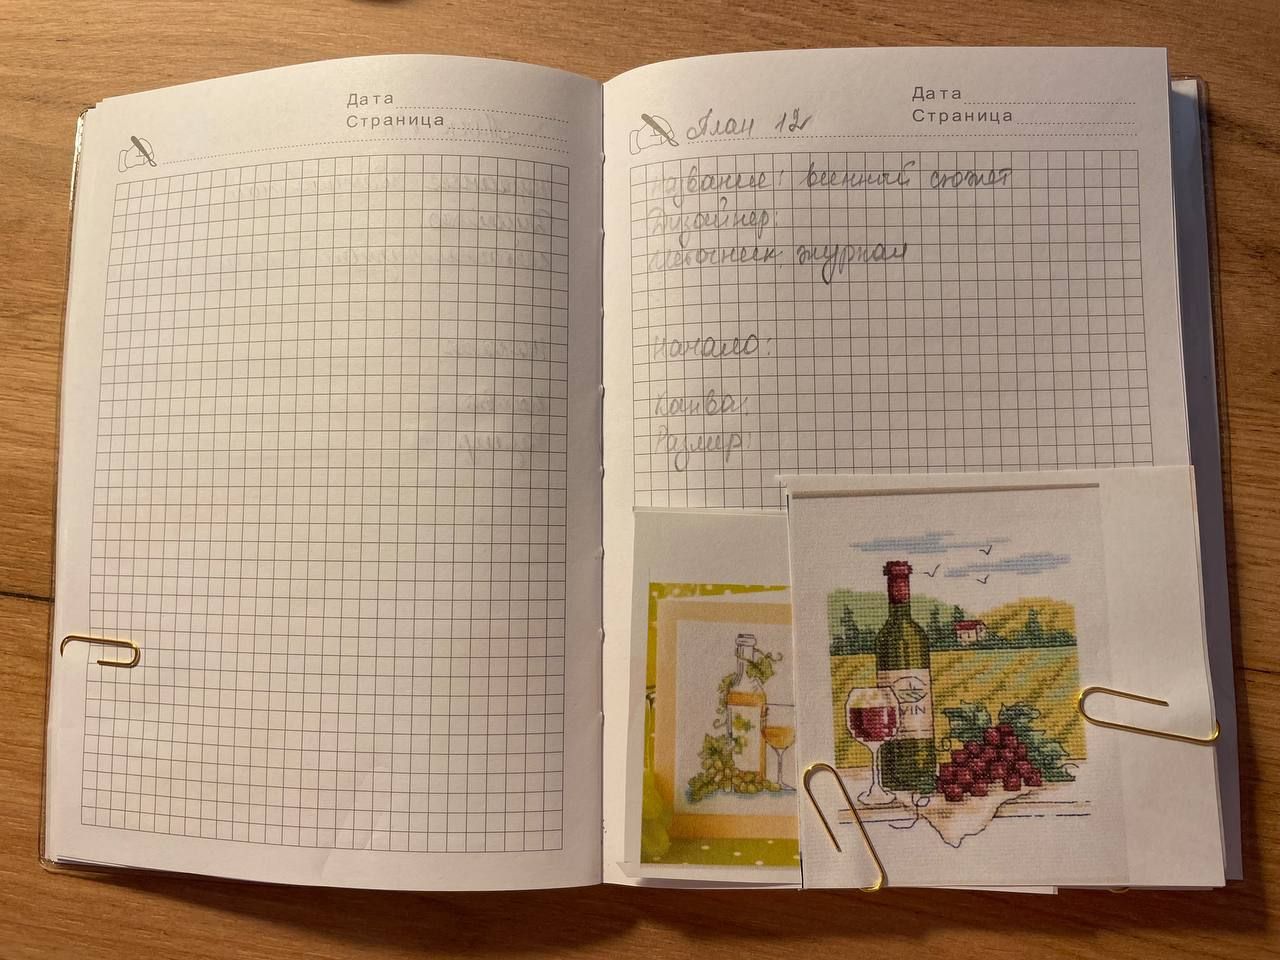 Дата
Страница
Дата
Страница
План 12
Название: винный сюжет
Дизайнер:
Источник: журнал
Начало:
Канва:
Размер:
VIN